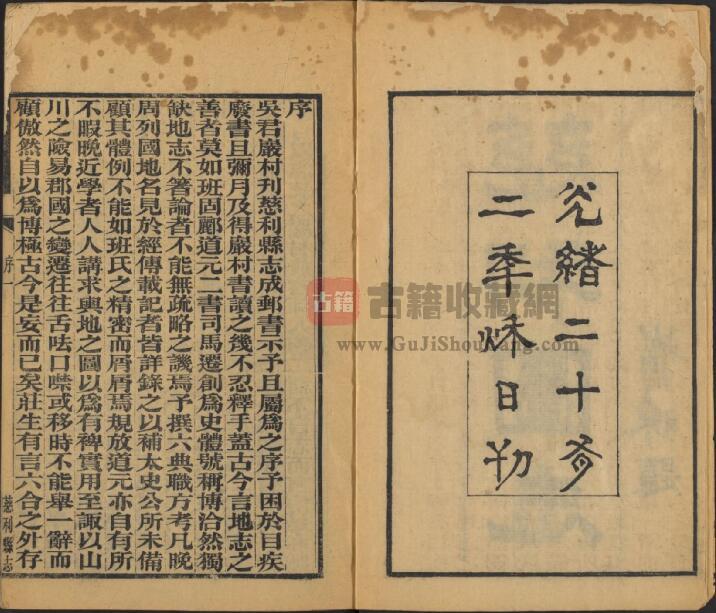 光緒二十有
二季秌日刊
序
吳君嚴村刊慈利縣志成郵書示予且屬爲之序予困於目疾
廢書且彌月及得嚴村書讀之幾不忍釋手蓋古今言地志之
善者莫如班固酈道元二書司馬遷創爲史體號稱博洽然獨
缺地志不箸論者不能無疏略之譏焉予撰六典職方考凡晚
周列國地名見於經傳載記者皆詳錄之以補太史公所未備
顧其體例不能如班氏之精密而屑屑焉規放道元亦自有所
不暇晚近學者人人講求輿地之圖以爲有裨實用至諏以山
川之險易郡國之變遷往往舌呿口噤或移時不能舉一辭而
顧傲然自以爲博極古今是妄而已矣莊生有言六合之外存
序一
慈利縣志
古籍
古籍收藏網
www.GuJiShouCang.com